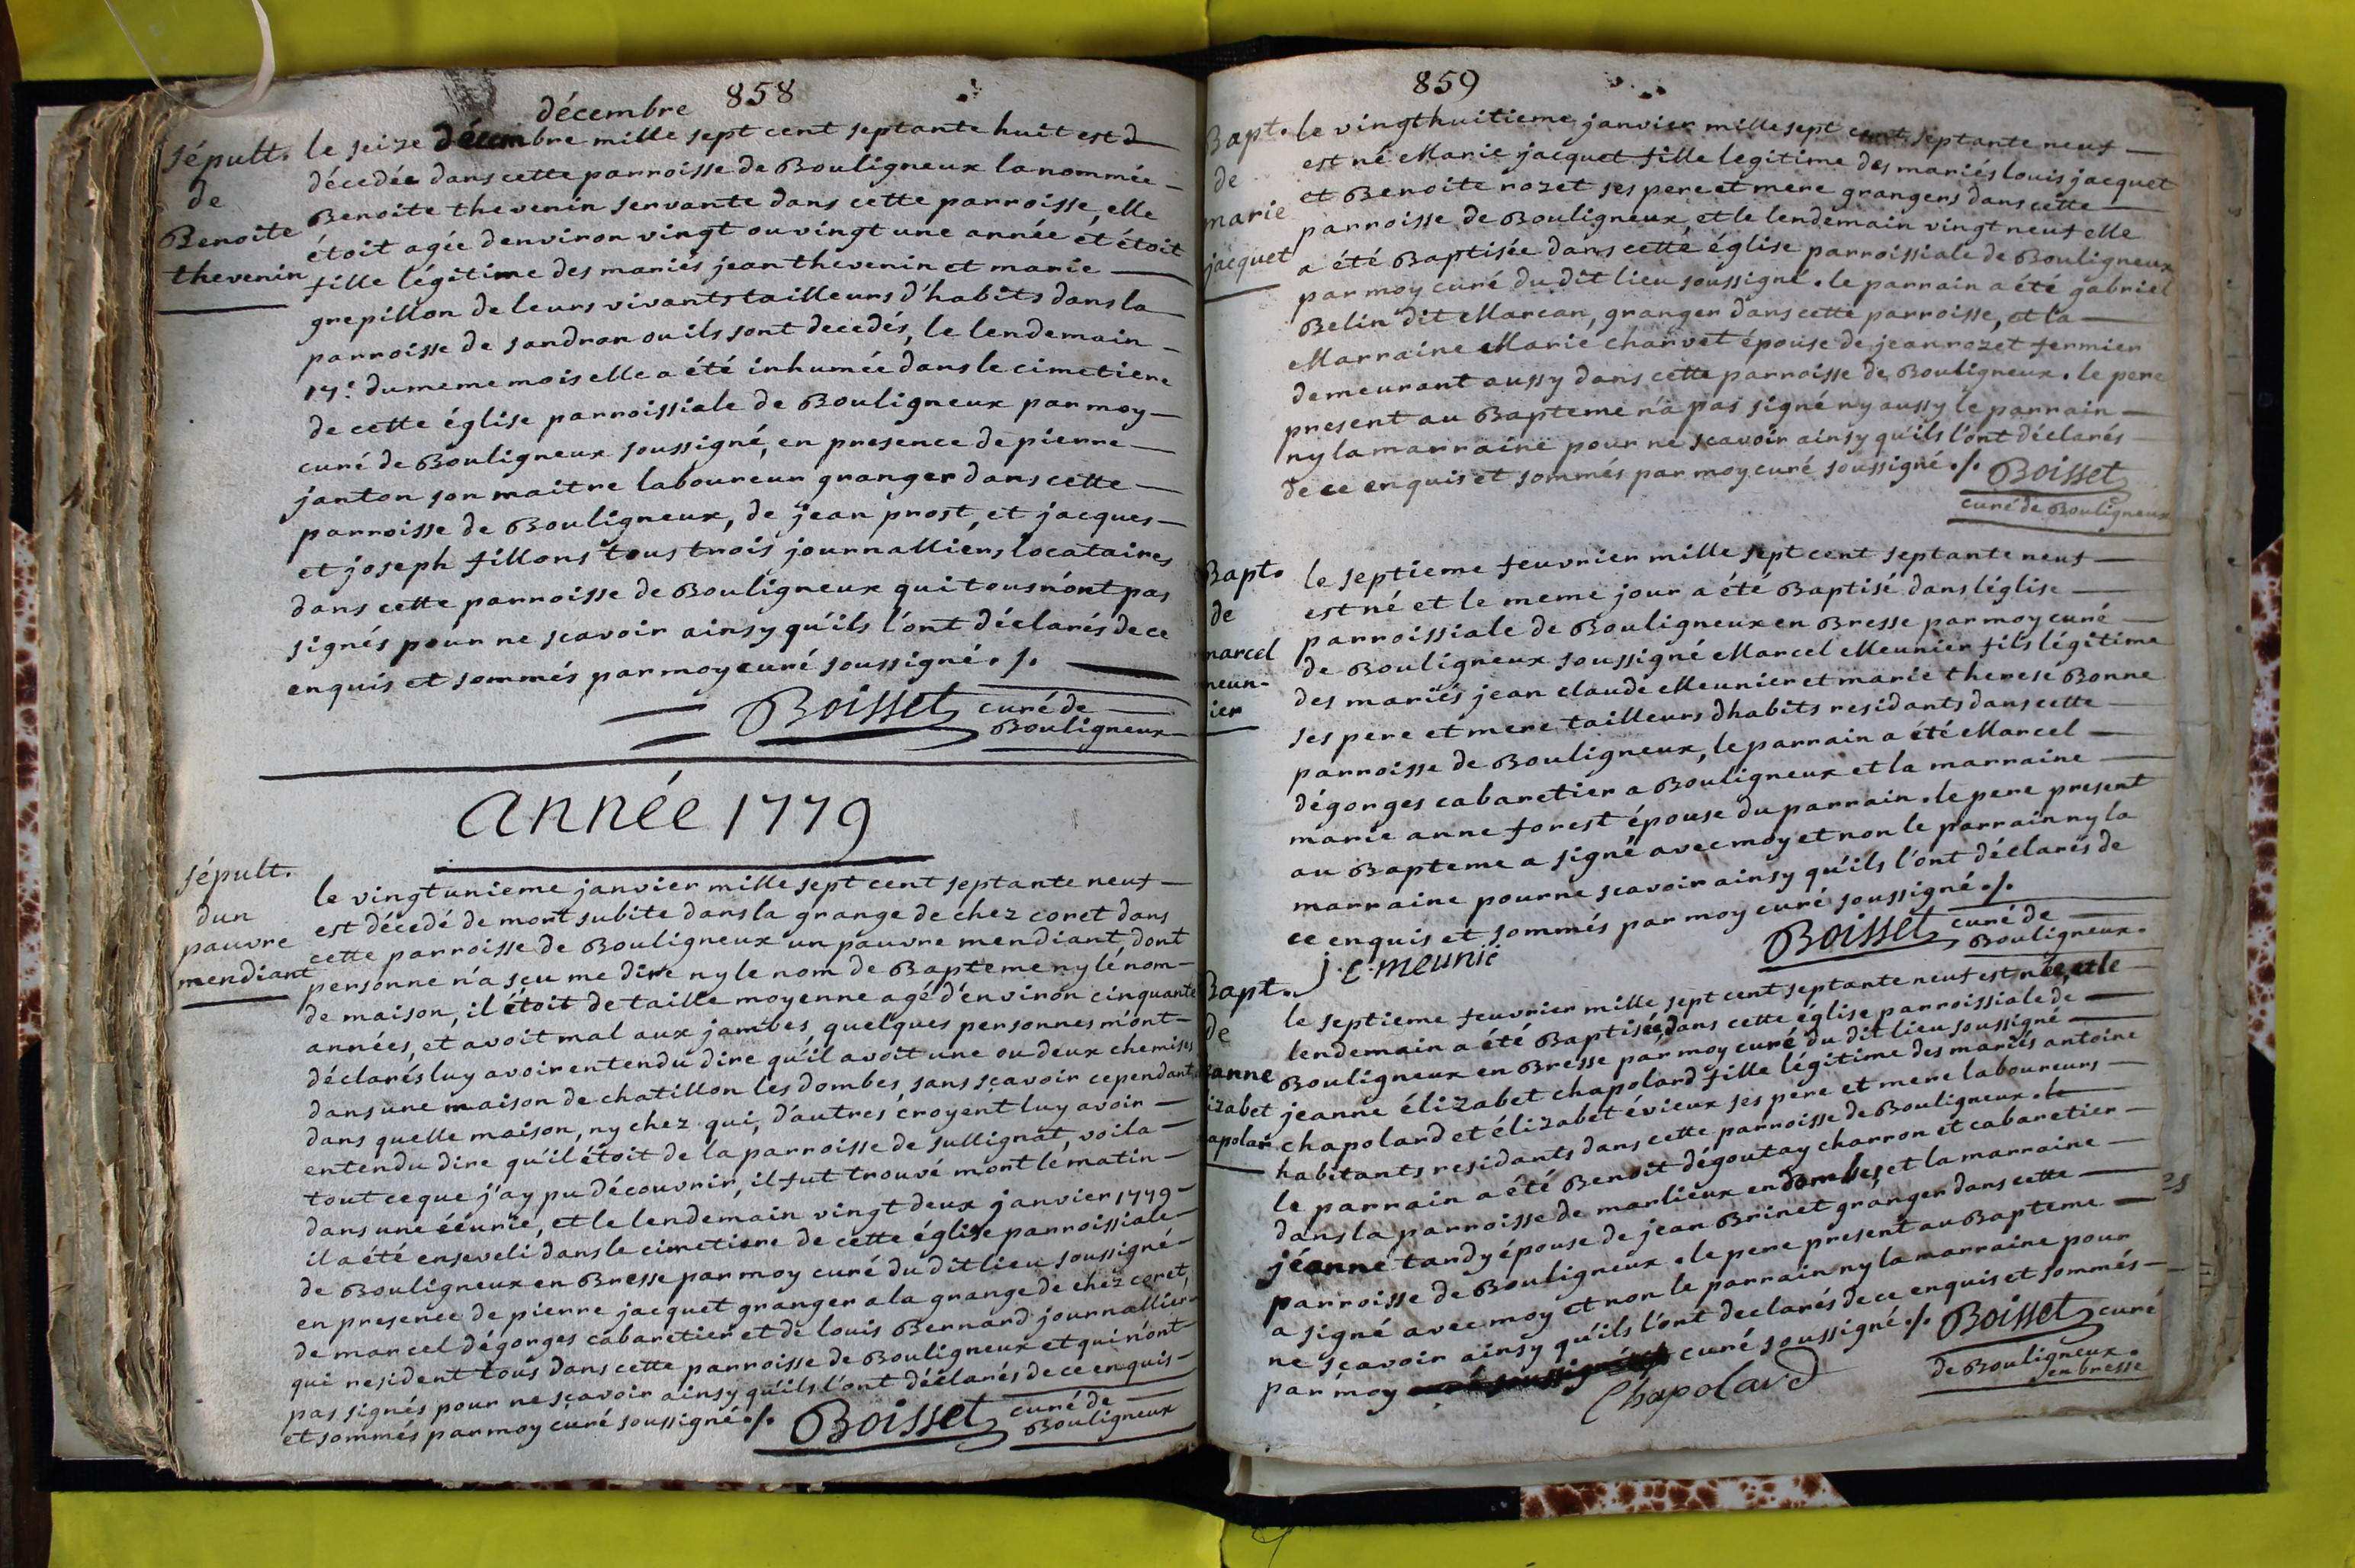 858
décembre
sépult.
de
Benoite
thevenin
le seize décembre mille sept cent septante huit est d
décedée dans cette parroisse de Bouligneux la nommée
Benoite thevenin servante dans cette parroisse, elle
étoit agée denviron vingt ou vingt une année et étoit
fille légitime des mariés jean thevenin et marie
grepillon de leurs vivants tailleurs d'habits dans la
parroisse de sandran ou ils sont decedés, le lendemain
17e. du meme mois elle a été inhumée dans le cimetiere
de cette église parroissiale de Bouligneux par moy
curé de Bouligneux soussigné, en presence de pierre
janton son maitre laboureur granger dans cette
parroisse de Bouligneux, de jean prost, et jacques
et joseph fillons tous trois journalliers locataires
dans cette parroisse de Bouligneux qui tous n'ont pas
signés pour ne scavoir ainsy qu'ils l'ont déclarés de ce
enquis et sommés par moy curé soussigné ./.
Boisset curé de
Bouligneux
année 1779
sépult.
dun
pauvre
mendiant
le vingt unieme janvier mille sept cent septante neuf
est décedé de mort subite dans la grange de chez coret dans
cette parroisse de Bouligneux un pauvre mendiant, dont
personne n'a sçu me dire ny le nom de Bapteme ny lé nom
de maison, il étoit de taille moyenne agé d'environ cinquante
années, et avoit mal aux jambes, quelques personnes m'ont
déclarés luy avoir entendu dire qu'il avoit une ou deux chemises
dans une maison de chatillon les dombes, sans sçavoir cependant
dans quelle maison, ny chez qui, d'autres croyent luy avoir
entendu dire qu'il étoit de la parroisse de sullignat, voila
tout ce que j'ay pu découvrir, il fut trouvé mort lé matin
dans une éeurie, et le lendemain vingt deux janvier 1779
il a été enseveli dans le cimetiere de cette église parroissiale
de Bouligneux en Bresse par moy curé du dit lieu soussigné
en presence de pierre jacquet granger a la grange de chez coret,
de marcel dégorges cabaretier et de louis Bernard journallier
qui resident tous dans cette parroisse de Bouligneux et qui n'ont
pas signés pour ne sçavoir ainsy qu'ils l'ont déclarés de ce enquis
et sommés par moy curé soussigné ./. Boisset curé de
Bouligneux
859
Bapt.
de
marie
jacquet
le vingt huitieme janvier mille sept cent septante neuf
est né Marie jacquet fille legitime des mariés louis jacquet
et Benoite rozet ses pere et mere grangers dans cette
parroisse de Bouligneux, et le lendemain vingt neuf elle
a été Baptisée dans cette église parroissiale de Bouligneux
par moy curé du dit lieu soussigné. le parrain a été gabriel
Belin dit Marcan, granger dans cette parroisse, et la
Marraine Marie charvet épouse de jean rozet fermier
demeurant aussy dans cette parroisse de Bouligneux. le pere
present au Bapteme n'a pas signé ny aussy le parrain
ny la marraine pour ne scavoir ainsy qu'ils l'ont déclarés
de ce enquis et sommés par moy curé soussigné ./. Boisset
curé de Bouligneux
Bapt.
de
marcel
meun-
ier
le septieme feuvrier mille sept cent septante neuf
est né et le meme jour a été Baptisé dans léglise
parroissiale de Bouligneux en Bresse par moy curé
de Bouligneux soussigné Marcel Meunier fils légitime
des mariés jean claude Meunier et marie therese Bonne
ses pere et mere tailleurs dhabits residants dans cette
parroisse de Bouligneux, le parrain a été Marcel
dégorges cabaretier a Bouligneux et la marraine
marie anne forest épouse du parrain. le pere present
au Bapteme a signé avec moy et non le parrain ny la
marraine pour ne scavoir ainsy qu'ils l'ont déclarés de
ce enquis et sommés par moy curé soussigné ./.
j. c. meunié
Boisset curé de
Bouligneux.
Bapt.
de
janne
izabet
apolar
le septieme feuvrier mille sept cent septante neuf est née, et le
lendemain a été Baptisée, dans cette église parroissiale de
Bouligneux en Bresse par moy curé du dit lieu soussigné
jeanne élizabet chapolard fille légitime des mariés antoine
chapolard et élizabet évieux ses pere et mere laboureurs
habitants residants dans cette parroisse de Bouligneux. le
le parrain a été Benoit dégoutay charron et cabaretier
dans la parroisse de marlieux en dombes, et la marraine
jéanne tardy épouse de jean Brinet granger dans cette
parroisse de Bouligneux. le pere present au Bapteme
a signé avec moy et non le parrain ny la marraine pour
ne sçavoir ainsy qu'ils l'ont declarés de ce enquis et sommés
par moy curé soussigné ./. Boisset curé
de Bouligneux.
en bresse
Chapolard